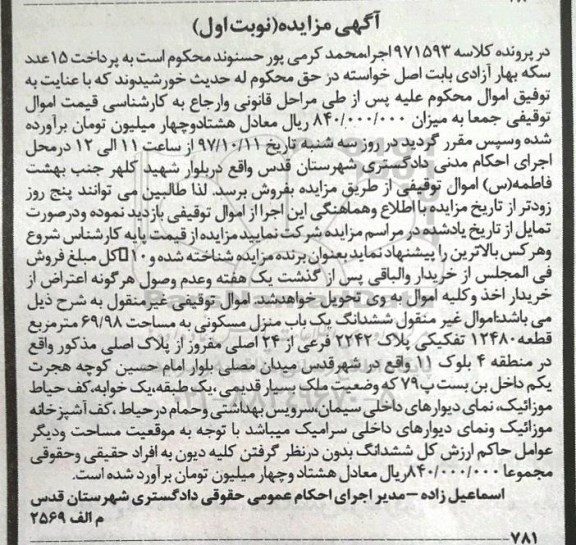 آگهی مزایده(نوبت اول)
در پرونده کلاسه ۹۷۱۵۹۳ اجرا محمد کرمی پور حسنوند محکوم است به پرداخت ۱۵عدد
سکه بهار آزادی بابت اصل خواسته در حق محکوم له حدیث خورشیدوند که با عنایت به
توفیق اموال محکوم علیه پس از طی مراحل قانونی وارجاع به کارشناسی قیمت اموال
توقیفی جمعا به میزان ۸۴۰/۰۰۰/۰۰۰ ریال معادل هشتادوچهار میلیون تومان برآورده
شده وسپس مقرر گردید در روز سه شنبه تاریخ ۹۷/۱۰/۱۱ از ساعت ۱۱ الی ۱۲ درمحل
اجرای احکام مدنی دادگستری شهرستان قدس واقع دربلوار شهید کلهر جنب بهشت
فاطمه(س) اموال توقیفی از طریق مزایده بفروش برسد. لذا طالبین می توانند پنج روز
زودتر از تاریخ مزایده با اطلاع وهماهنگی این اجرا از اموال توقیفی بازدید نموده ودرصورت
تمایل از تاریخ یادشده در مراسم مزایده شرکت نمایید مزایده از قیمت پایه کارشناس شروع
وهرکس بالاترین را پیشنهاد نماید بعنوان برنده مزایده شناخته شده و۱۰٪کل مبلغ فروش
فی المجلس از خریدار والباقی پس از گذشت یک هفته وعدم وصول هرگونه اعتراض از
خریدار اخذ وکلیه اموال به وی تحویل خواهدشد. اموال توقیفی غیرمنقول به شرح ذیل
می باشد:اموال غیر منقول ششدانگ یک باب منزل مسکونی به مساحت ۶۹/۹۸ مترمربع
قطعه۱۲۴۸۰ تفکیکی پلاک ۲۲۴۲ فرعی از ۲۴ اصلی مفروز از پلاک اصلی مذکور واقع
در منطقه ۴ بلوک ۱۱ واقع در شهرقدس میدان مصلی بلوار امام حسین کوچه هجرت
یکم داخل بن بست پ۷۹ که وضعیت ملک بسیار قدیمی ،یک طبقه،یک خوابه،کف حیاط
موزائیک، نمای دیوارهای داخلی سیمان،سرویس بهداشتی وحمام درحیاط ،کف آشپزخانه
موزائیک ونمای دیوارهای داخلی سرامیک میباشد با توجه به موقعیت مساحت ودیگر
عوامل حاکم ارزش کل ششدانگ بدون درنظر گرفتن کلیه دیون به افراد حقیقی وحقوقی
مجموعا ۸۴۰/۰۰۰/۰۰۰ریال معادل هشتاد وچهار میلیون تومان برآورد شده است.
اسماعیل زاده –مدیر اجرای احکام عمومی حقوقی دادگستری شهرستان قدس
م الف ۲۵۶۹
۷۸۱